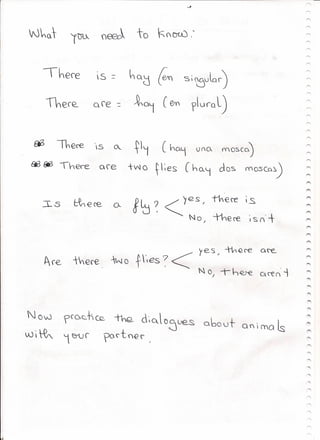 What you need to know:
There is = hay (en singular)
There are = hay (en plural)
There is a fly (hay una mosca)
There are two flies (hay dos moscas)
Is there a fly? < yes, there is
No, there isn't
Are there two flies? < yes, there are
No, there aren't
Now practice the dialogues about animals
with your partner.